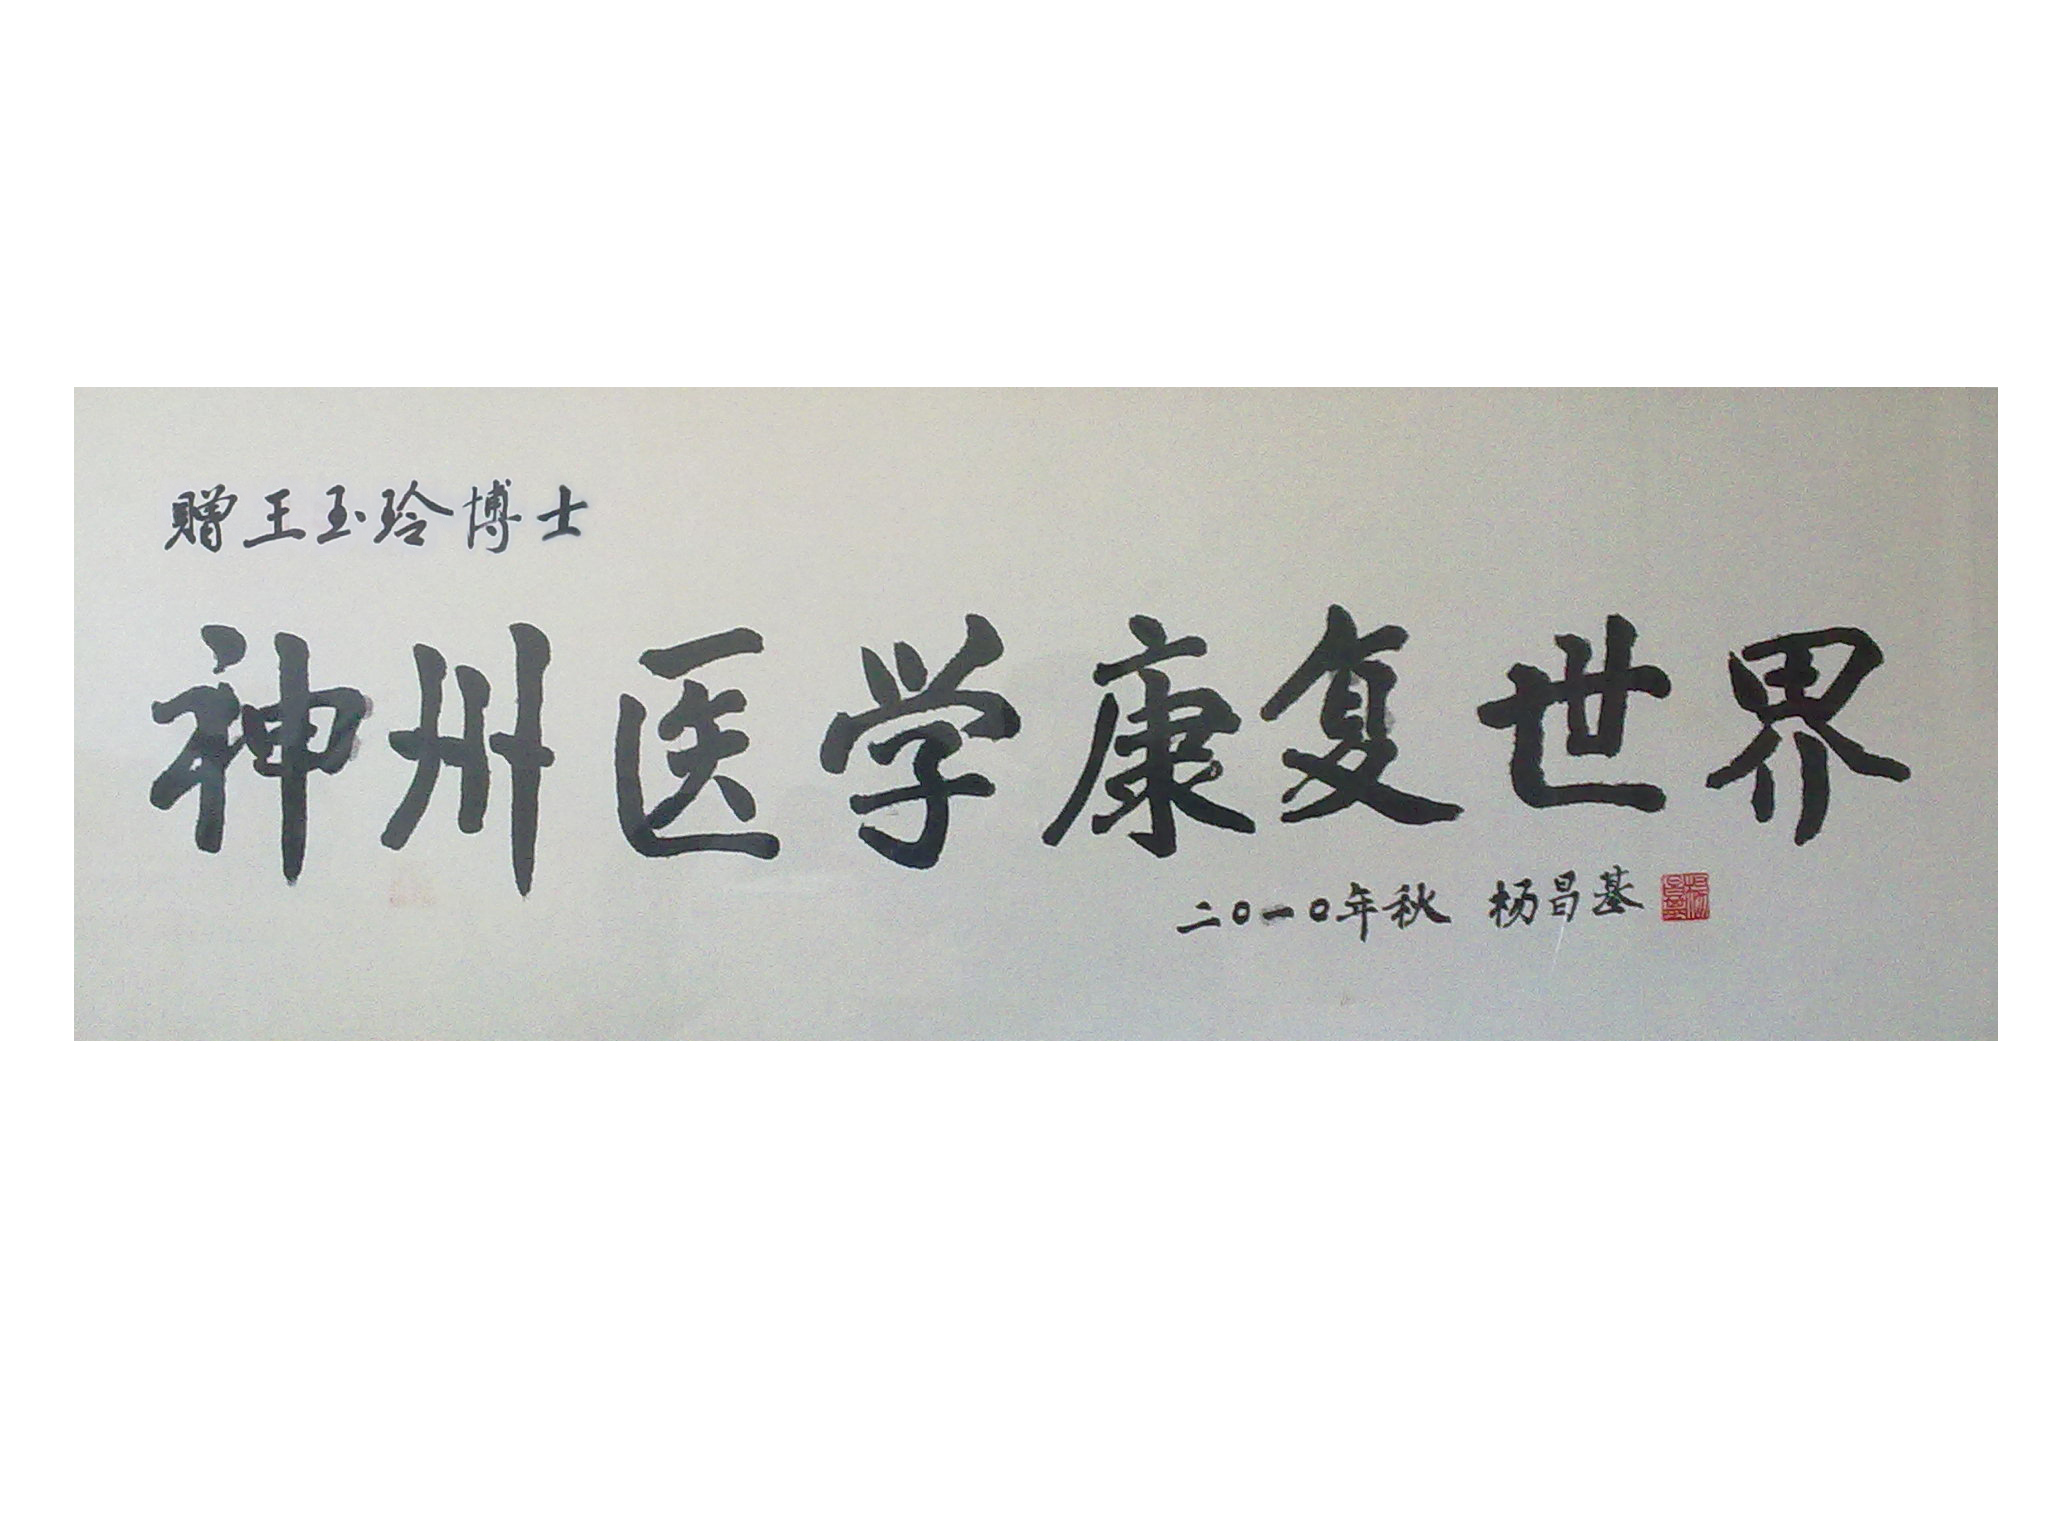 赠王玉玲博士
神州医学康复世界
二〇一〇年秋 杨昌基